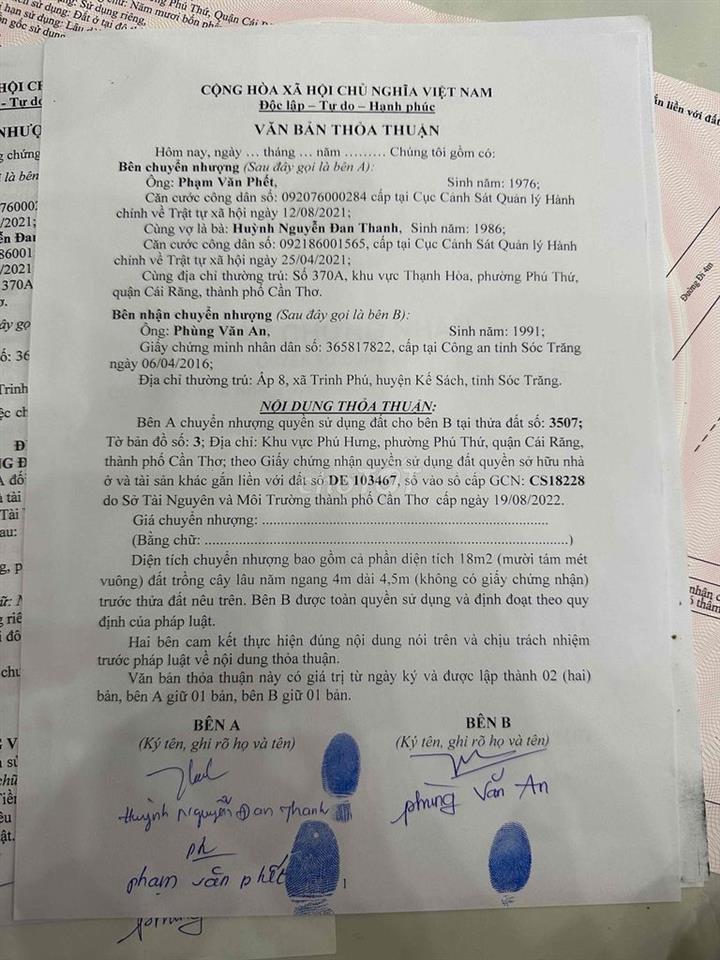 Phú Thứ, Quận Cái Răng
sử dụng: Đất ở tại đô
hạn sử dụng: Lâu dài
gốc sử dụng
CỘNG HÒA XÃ HỘI CHỦ NGHĨA VIỆT NAM
Độc lập – Tự do – Hạnh phúc
VĂN BẢN THỎA THUẬN
Hôm nay, ngày … tháng … năm ……… Chúng tôi gồm có:
Bên chuyển nhượng (Sau đây gọi là bên A):
Ông: Phạm Văn Phết, Sinh năm: 1976;
Căn cước công dân số: 092076000284 cấp tại Cục Cảnh Sát Quản lý Hành
chính về Trật tự xã hội ngày 12/08/2021;
Cùng vợ là bà: Huỳnh Nguyễn Đan Thanh, Sinh năm: 1986;
Căn cước công dân số: 092186001565, cấp tại Cục Cảnh Sát Quản lý Hành
chính về Trật tự xã hội ngày 25/04/2021;
Cùng địa chỉ thường trú: Số 370A, khu vực Thạnh Hòa, phường Phú Thứ,
quận Cái Răng, thành phố Cần Thơ.
Bên nhận chuyển nhượng (Sau đây gọi là bên B):
Ông: Phùng Văn An, Sinh năm: 1991;
Giấy chứng minh nhân dân số: 365817822, cấp tại Công an tỉnh Sóc Trăng
ngày 06/04/2016;
Địa chỉ thường trú: Ấp 8, xã Trinh Phú, huyện Kế Sách, tỉnh Sóc Trăng.
NỘI DUNG THỎA THUẬN:
Bên A chuyển nhượng quyền sử dụng đất cho bên B tại thửa đất số: 3507;
Tờ bản đồ số: 3; Địa chỉ: Khu vực Phú Hưng, phường Phú Thứ, quận Cái Răng,
thành phố Cần Thơ; theo Giấy chứng nhận quyền sử dụng đất quyền sở hữu nhà
ở và tài sản khác gắn liền với đất số DE 103467, số vào sổ cấp GCN: CS18228
do Sở Tài Nguyên và Môi Trường thành phố Cần Thơ cấp ngày 19/08/2022.
Giá chuyển nhượng: ..............................................................
(Bằng chữ: ..............................................................)
Diện tích chuyển nhượng bao gồm cả phần diện tích 18m2 (mười tám mét
vuông) đất trồng cây lâu năm ngang 4m dài 4,5m (không có giấy chứng nhận)
trước thửa đất nêu trên. Bên B được toàn quyền sử dụng và định đoạt theo quy
định của pháp luật.
Hai bên cam kết thực hiện đúng nội dung nói trên và chịu trách nhiệm
trước pháp luật về nội dung thỏa thuận.
Văn bản thỏa thuận này có giá trị từ ngày ký và được lập thành 02 (hai)
bản, bên A giữ 01 bản, bên B giữ 01 bản.
BÊN A BÊN B
(Ký tên, ghi rõ họ và tên) (Ký tên, ghi rõ họ và tên)
Huỳnh Nguyễn Đan Thanh
phùng Văn An
phạm văn phết
1
phùng
Đường Đi 4m
ắn liền với đất
chợTỐT